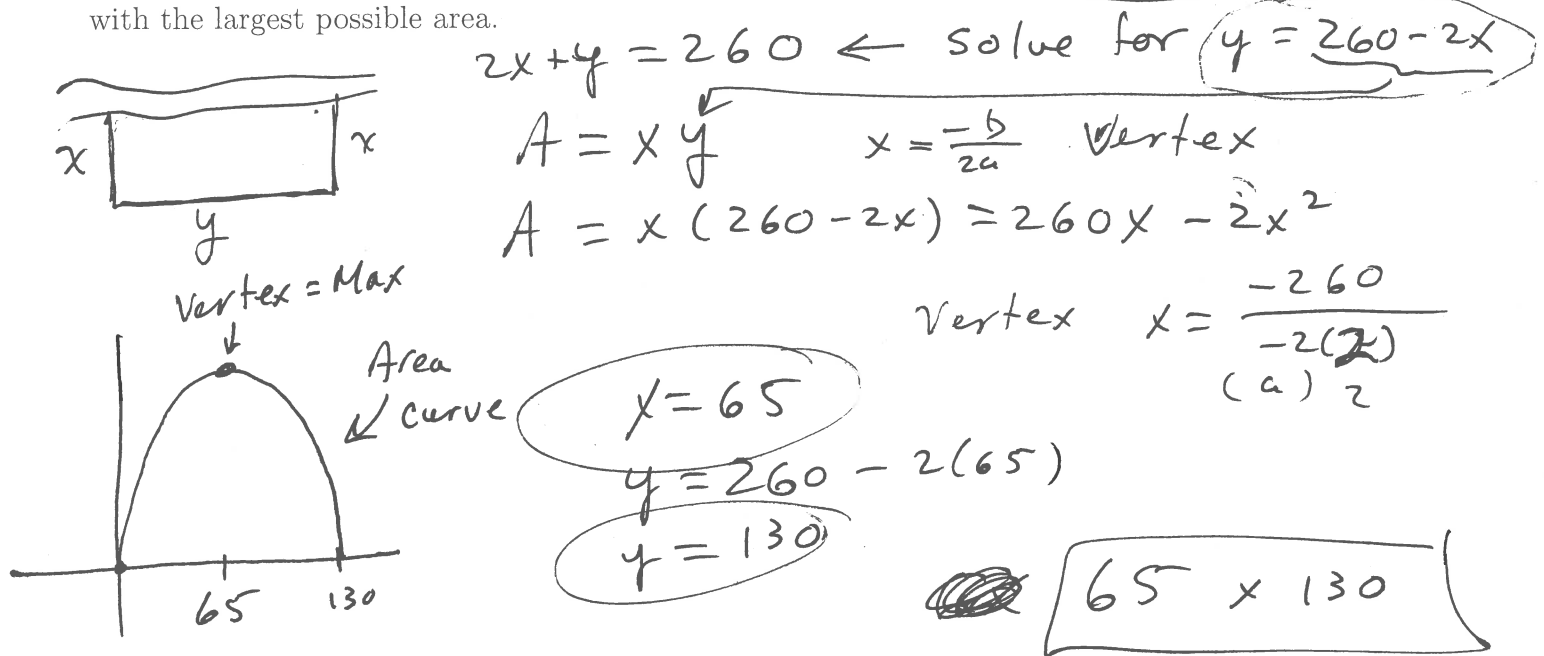 with the largest possible area.
2x + y = 260 ← solve for y = 260 - 2x
A = x y
x = -b/2a Vertex
x
x
y
A = x (260 - 2x) = 260x - 2x²
Vertex = Max
Vertex x = -260/-2(2)
(a) 2
Area
curve
x = 65
y = 260 - 2(65)
y = 130
65
130
65 x 130